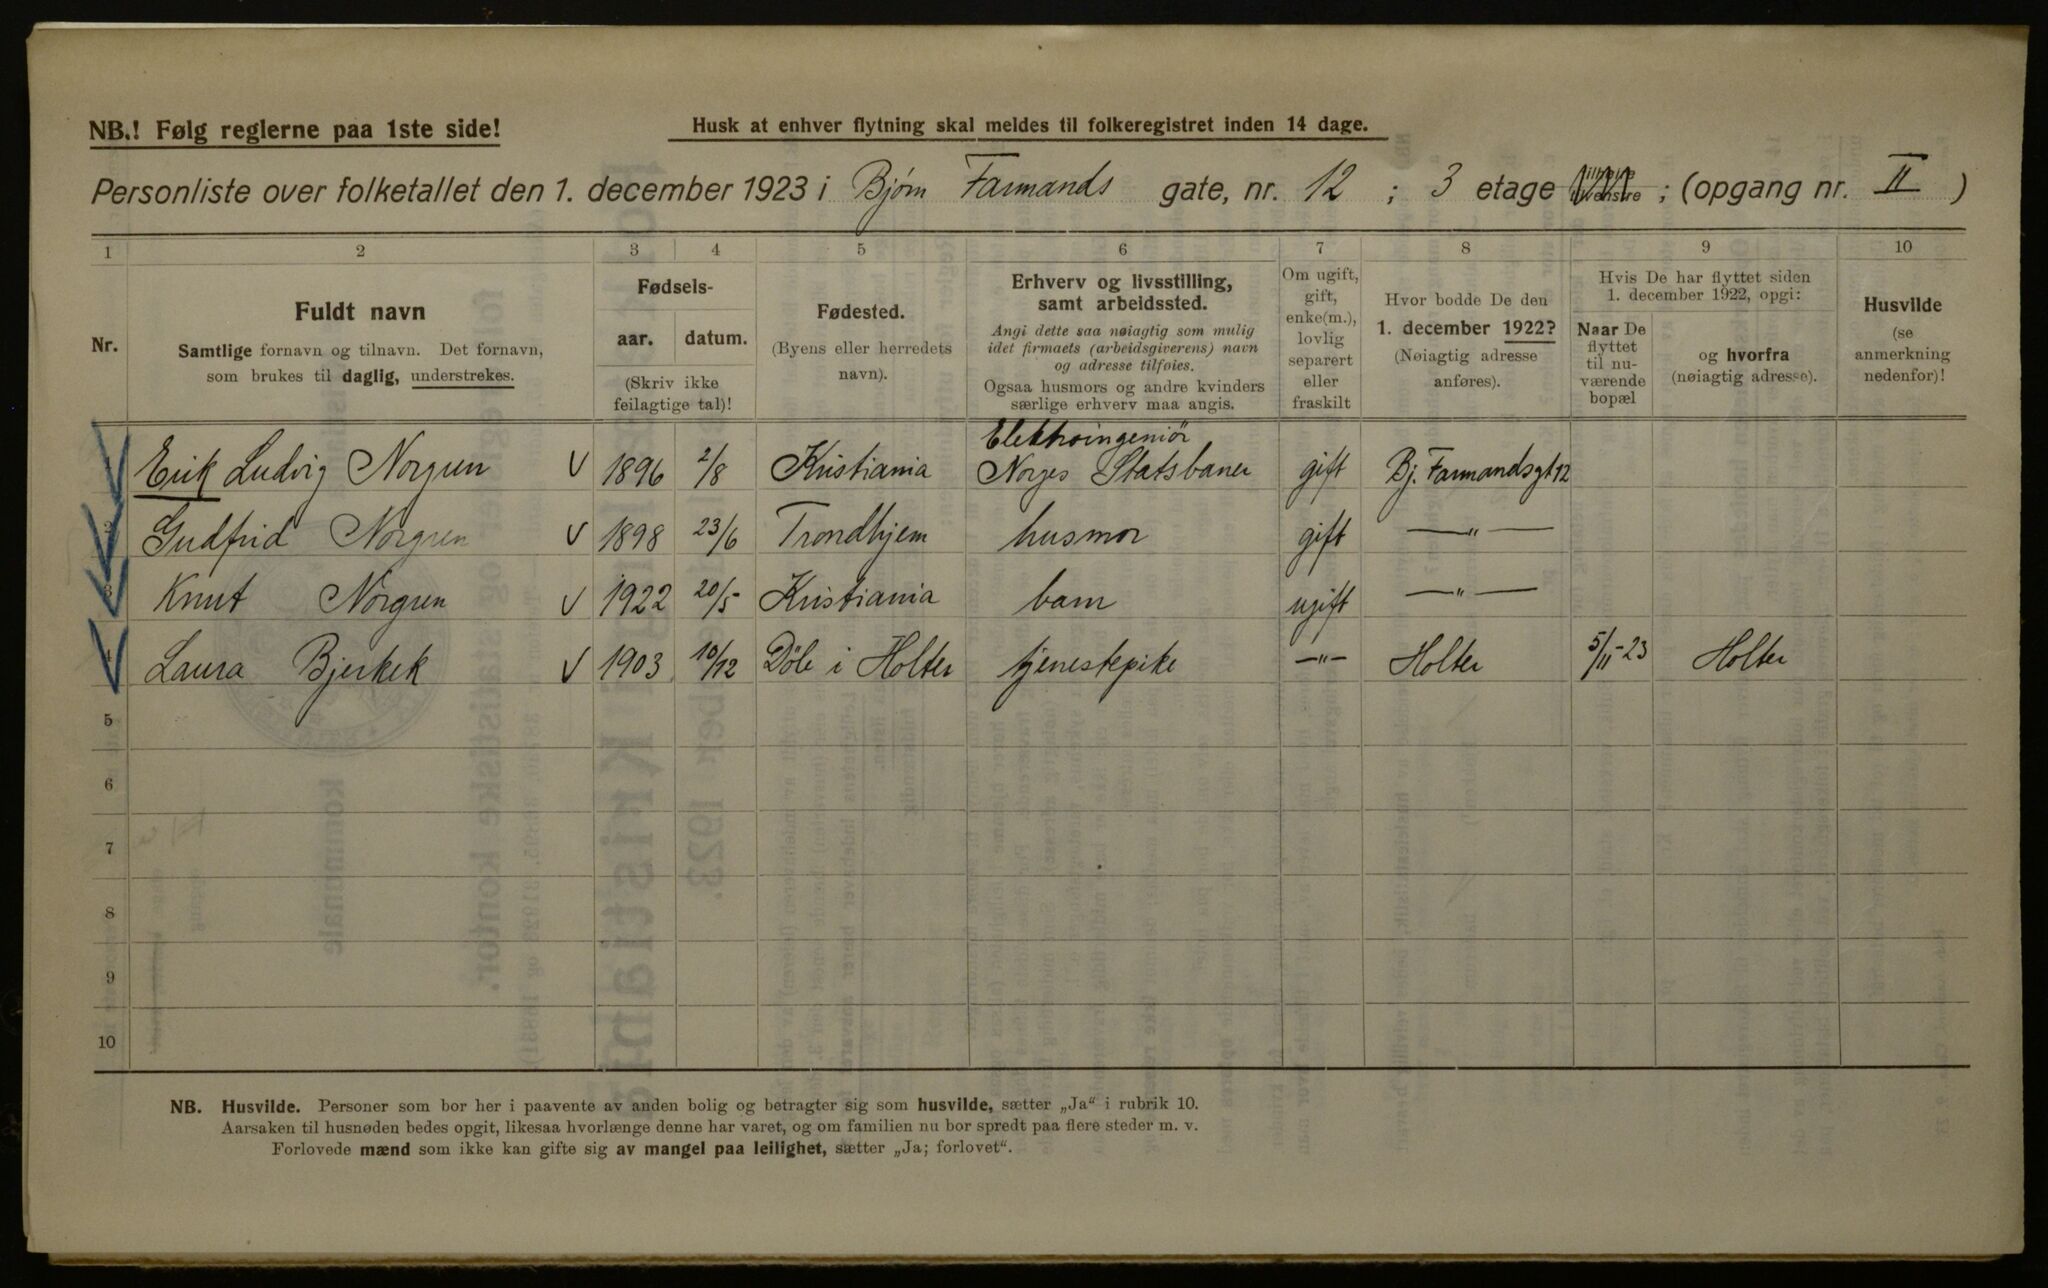 NB.! Følg reglerne paa 1ste side!
Husk at enhver flytning skal meldes til folkeregistret inden 14 dage.
Personliste over folketallet den 1. december 1923 i Bjørn Farmands gate, nr. 12 ; 3 etage ; (opgang nr. II )
1 2 3 4 5 6 7 8 9 10
Nr.
Fuldt navn
Samtlige fornavn og tilnavn. Det fornavn,
som brukes til daglig, understrekes.
Fødsels-
aar. datum.
(Skriv ikke
feilagtige tal)!
Fødested.
(Byens eller herredets
navn).
Erhverv og livsstilling,
samt arbeidssted.
Angi dette saa nøiagtig som mulig
idet firmaets (arbeidsgiverens) navn
og adresse tilføies.
Ogsaa husmors og andre kvinders
særlige erhverv maa angis.
Om ugift,
gift,
enke(m.),
lovlig
separert
eller
fraskilt
Hvor bodde De den
1. december 1922?
(Nøiagtig adresse
anføres).
Hvis De har flyttet siden
1. december 1922, opgi:
Naar De
flyttet
til nu-
værende
bopæl
og hvorfra
(nøiagtig adresse).
Husvilde
(se
anmerkning
nedenfor)!
Elektroingeniør
1 Erik Ludvig Norgren V 1896 2/8 Kristiania Norges Statsbaner gift Bj. Farmandsgt 12
2 Gudfrid Norgren V 1898 23/6 Trondhjem husmor gift —"—
3 Knut Norgren V 1922 20/5 Kristiania barn ugift —"—
4 Laura Bjerkek V 1903 10/12 Døle i Holter tjenestepike —"— Holter 5/11-23 Holter
5
6
7
8
9
10
NB. Husvilde. Personer som bor her i paavente av anden bolig og betragter sig som husvilde, sætter „Ja“ i rubrik 10.
Aarsaken til husnøden bedes opgit, likesaa hvorlænge denne har varet, og om familien nu bor spredt paa flere steder m. v.
Forlovede mænd som ikke kan gifte sig av mangel paa leilighet, sætter „Ja; forlovet“.